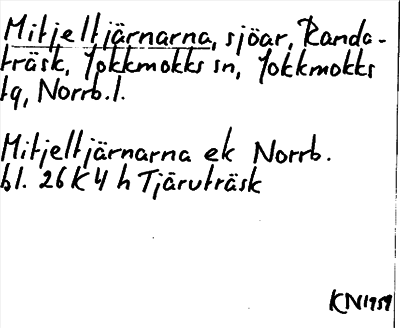 Mitjeltjärnarna, sjöar, Randa-
träsk, Jokkmokks sn, Jokkmokks
tg, Norrb.l.
Mitjeltjärnarna ek Norrb.
bl. 26K4h Tjäruträsk
KN1959